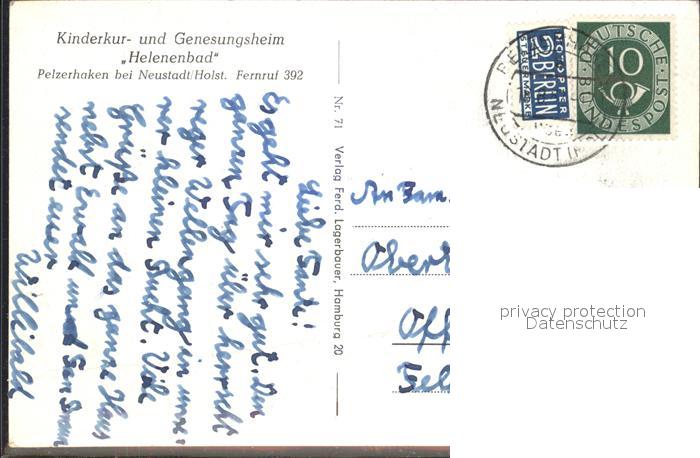 Kinderkur- und Genesungsheim
„Helenenbad"
Pelzerhaken bei Neustadt/Holst. Fernruf 392
Liebe Tante!
Es geht mir sehr gut. Den
ganzen Tag über herrscht
reger Wellengang in unse-
rer kleinen Bucht. Viele
Grüße an das ganze Haus
nebst Ewald und
sendet euer
Willibald
Nr. 71 Verlag Ferd. Lagerbauer, Hamburg 20
An Fam.
Obert
Off
Fel
NOTOPFER
2 BERLIN
STEUERMARKE
DEUTSCHE
10
BUNDESPOST
NEUSTADT
privacy protection
Datenschutz